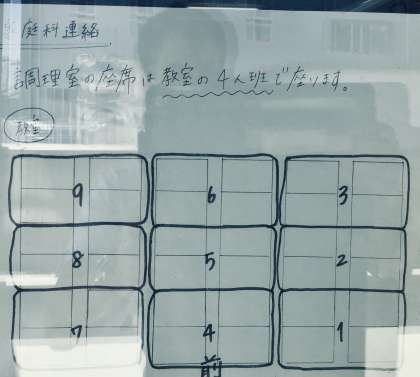 家庭科連絡
調理室の座席は教室の4人班で座ります。
教室
9 6 3
8 5 2
7 4 1
前